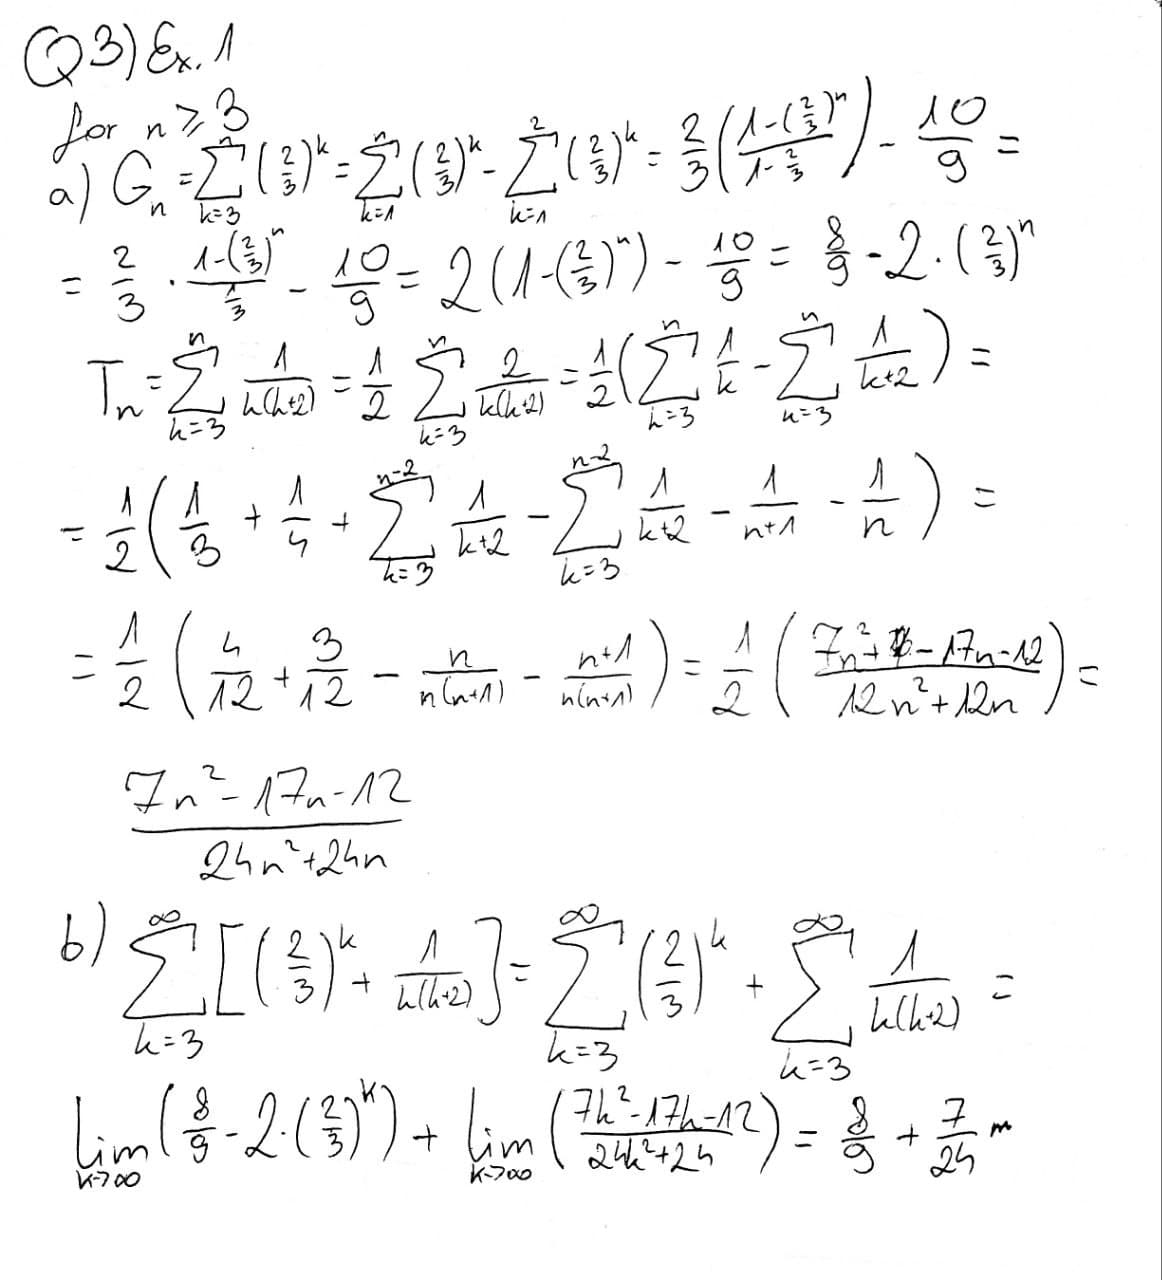 Q3) Ex. 1
for n ⩾ 3
a) G_n = \sum_{k=3}^{n} (\frac{2}{3})^k = \sum_{k=1}^{n} (\frac{2}{3})^k - \sum_{k=1}^{2} (\frac{2}{3})^k = \frac{2}{3} (\frac{1-(\frac{2}{3})^n}{1-\frac{2}{3}}) - \frac{10}{9} =
= \frac{2}{3} \cdot \frac{1-(\frac{2}{3})^n}{\frac{1}{3}} - \frac{10}{9} = 2(1-(\frac{2}{3})^n) - \frac{10}{9} = \frac{8}{9} - 2 \cdot (\frac{2}{3})^n
T_n = \sum_{k=3}^{n} \frac{1}{k(k+2)} = \frac{1}{2} \sum_{k=3}^{n} \frac{2}{k(k+2)} = \frac{1}{2} (\sum_{k=3}^{n} \frac{1}{k} - \sum_{k=3}^{n} \frac{1}{k+2}) =
= \frac{1}{2} (\frac{1}{3} + \frac{1}{4} + \sum_{k=3}^{n-2} \frac{1}{k+2} - \sum_{k=3}^{n-2} \frac{1}{k+2} - \frac{1}{n+1} - \frac{1}{n}) =
= \frac{1}{2} (\frac{4}{12} + \frac{3}{12} - \frac{n}{n(n+1)} - \frac{n+1}{n(n+1)}) = \frac{1}{2} (\frac{7n^2 + - 17n - 12}{12n^2 + 12n}) =
\frac{7n^2 - 17n - 12}{24n^2 + 24n}
b) \sum_{k=3}^{\infty} [(\frac{2}{3})^k + \frac{1}{k(k+2)}] = \sum_{k=3}^{\infty} (\frac{2}{3})^k + \sum_{k=3}^{\infty} \frac{1}{k(k+2)} =
\lim_{k \to \infty} (\frac{8}{9} - 2 \cdot (\frac{2}{3})^k) + \lim_{k \to \infty} (\frac{7k^2 - 17k - 12}{24k^2 + 24}) = \frac{8}{9} + \frac{7}{24}